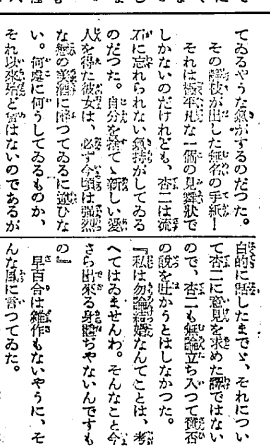 てゐるやうな氣がするのだつた。
その藝妓が出した無名の手紙！
それは極平凡な一個の見舞狀で
しかないのだけれども、杏二は流
石に忘れられない氣持がしてゐる
のだつた。自分を捨て、新しい愛
人を得た彼女は、必ず今頃は强烈
な戀の美酒に醉つてゐるに違ひな
い。何處に何うしてゐるものか、
それ以來殆ど會はないのであるが
白的に話したまでゞ、それについ
て杏二に意見を求めた譯ではない
ので、杏二も無論立ち入つて贊否
の說を吐かうとはしなかつた。
『私は勿論結婚なんてことは、考
へてはゐませんわ。そんなこと今
さら出來る身體ぢやないんですも
の』
早百合は雜作もないやうに、そ
んな風に言つてゐた。